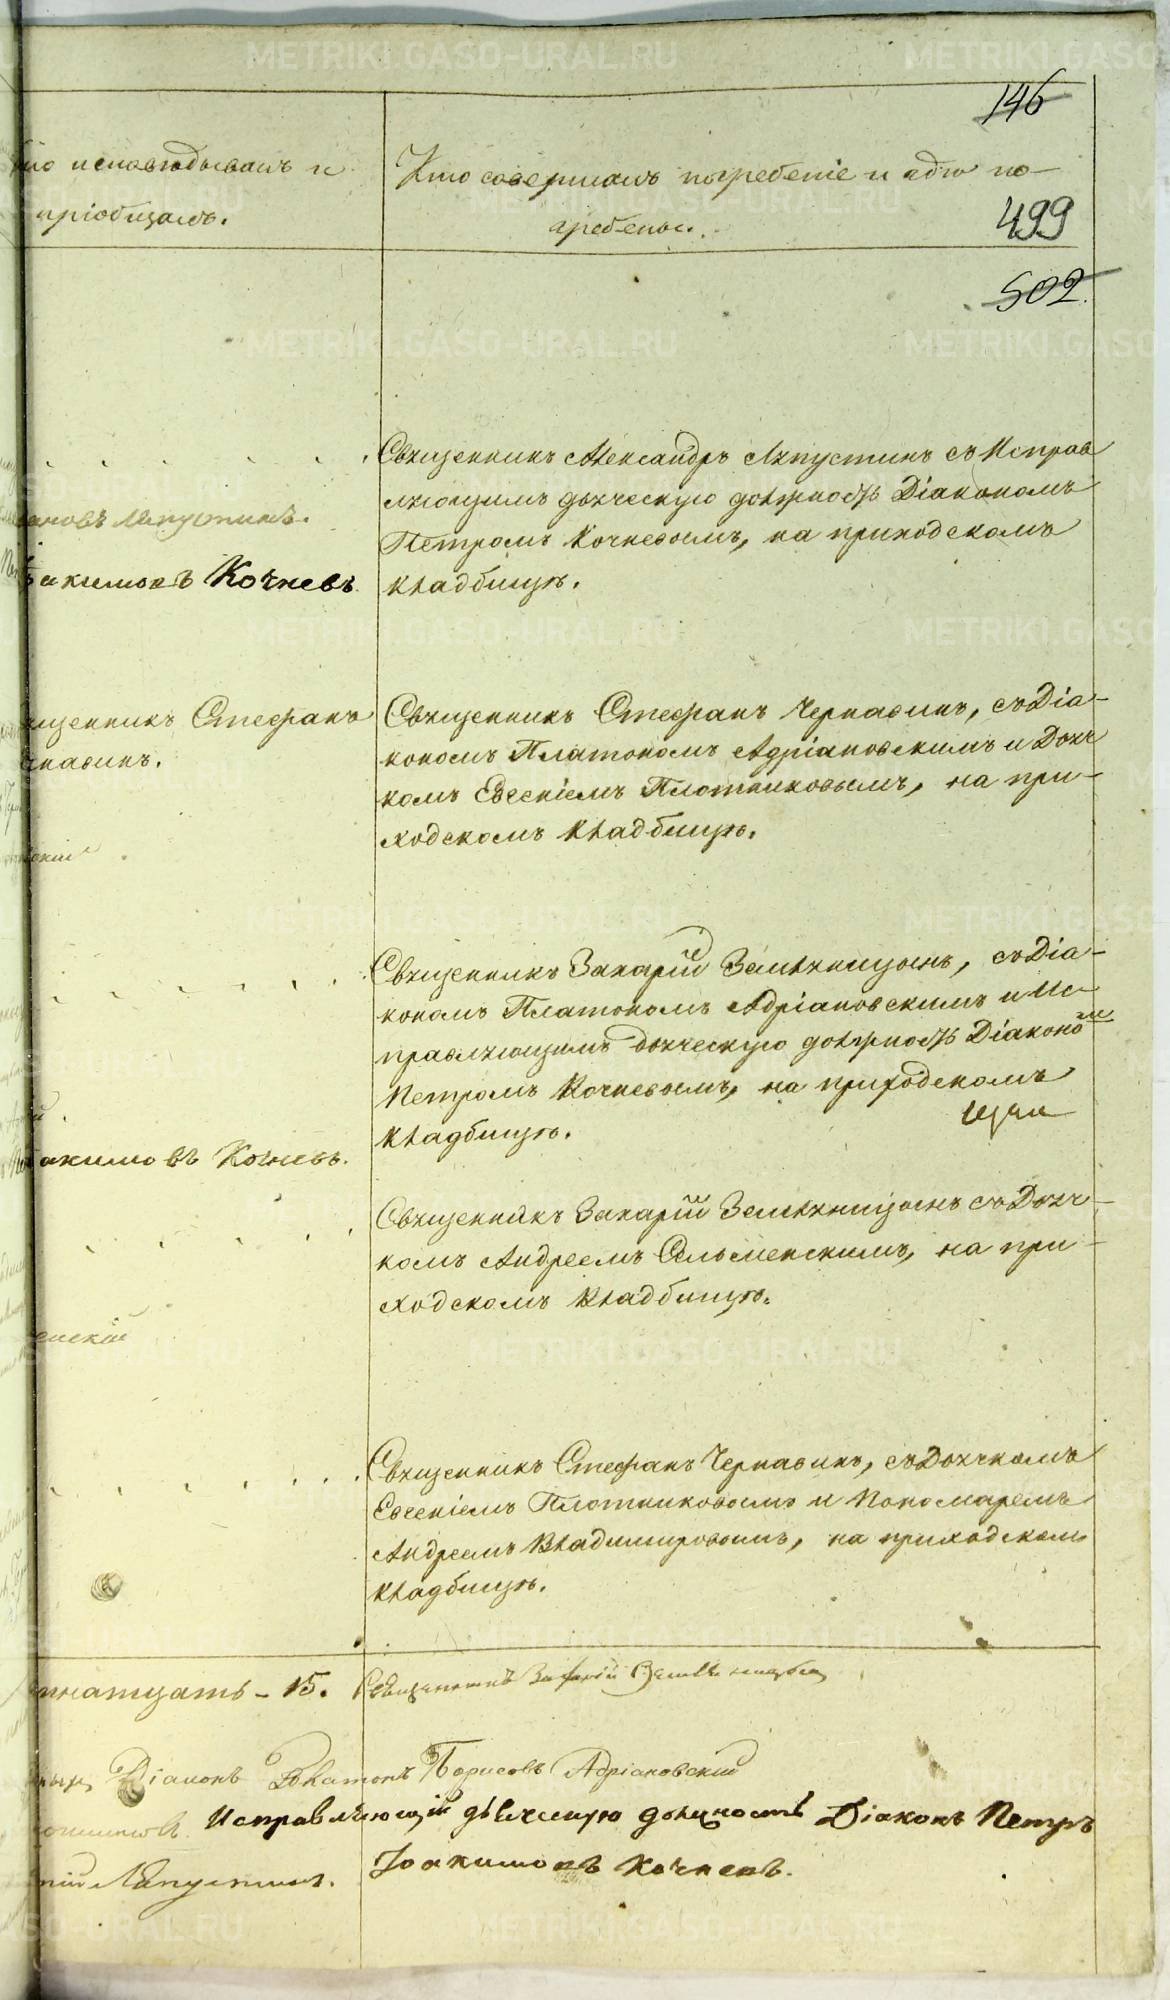 146
499
502.
исповѣдывалъ и
пріобщалъ.
Кто совершалъ погребеніе и гдѣ по-
гребены.
Священникъ Александръ Ляпустинъ съ Исправ
ляющимъ дьяческую должность Діакономъ
Петромъ Кочневымъ, на приходскомъ
кладбищѣ.
ановъ Ляпустинъ.
акимовъ Кочневъ
щенникъ Стефанъ
навинъ.
Священникъ Стефанъ Чернавинъ, съ Діа-
кономъ Платономъ Адріановскимъ и Дьяч
комъ Евгеніемъ Плотниковымъ, на при-
ходскомъ кладбищѣ.
Священникъ Захарій Земляницынъ, съ Діа-
кономъ Платономъ Адріановскимъ и Ис-
правляющимъ дьяческую должность Діакономъ
Петромъ Кочневымъ, на приходскомъ
кладбищѣ.
акимовъ Кочневъ.
Священникъ Захарій Земляницынъ съ Дьяч-
комъ Андреемъ Сельменскимъ, на при-
ходскомъ кладбищѣ.
енскій
Священникъ Стефанъ Чернавинъ, съ Дьячкомъ
Евгеніемъ Плотниковымъ и Пономаремъ
Андреемъ Владимировымъ, на приходскомъ
кладбищѣ.
натцать - 15.
Священникъ Захарій Земляницынъ
Діаконъ Платонъ Борисовъ Адріановскій
Исправляющій дьяческую должность Діаконъ Петръ
Іоакимовъ Кочневъ.
Ляпустинъ.
METRIKI.GASO-URAL.RU